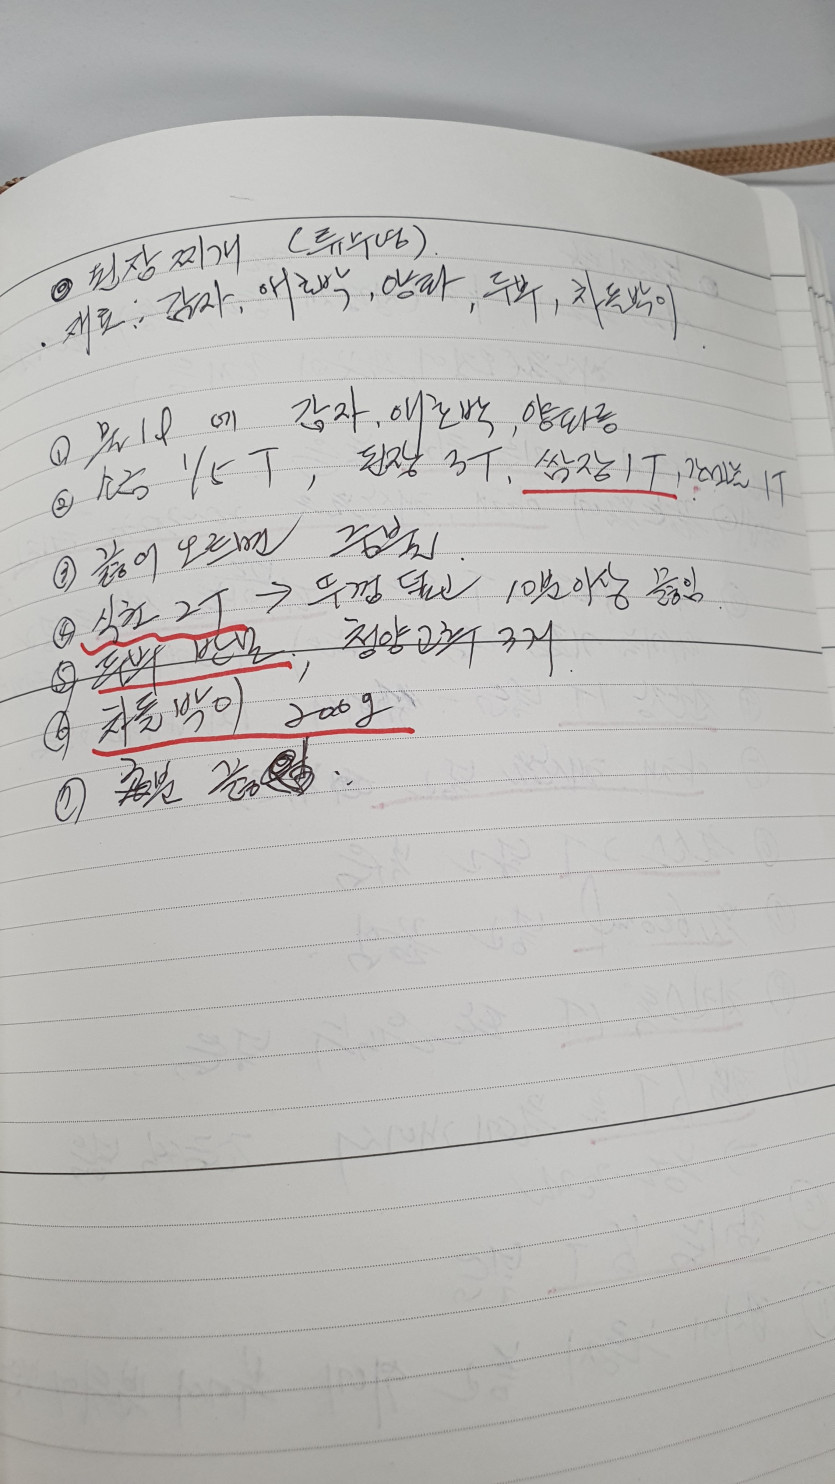 ◉ 된장 찌개 (류수영).
· 재료: 감자, 애호박, 양파, 두부, 차돌박이.
① 물 1l 에 감자, 애호박, 양파 등
② 소금 1/5 T, 된장 3T, 쌈장 1T, 1T
③ 끓어 오르면 중불로.
④ 식초 2T → 뚜껑 닫고 10분 이상 끓임.
⑤ 두부 반모, 청양고추 3개.
⑥ 차돌박이 200g
⑦ 끓